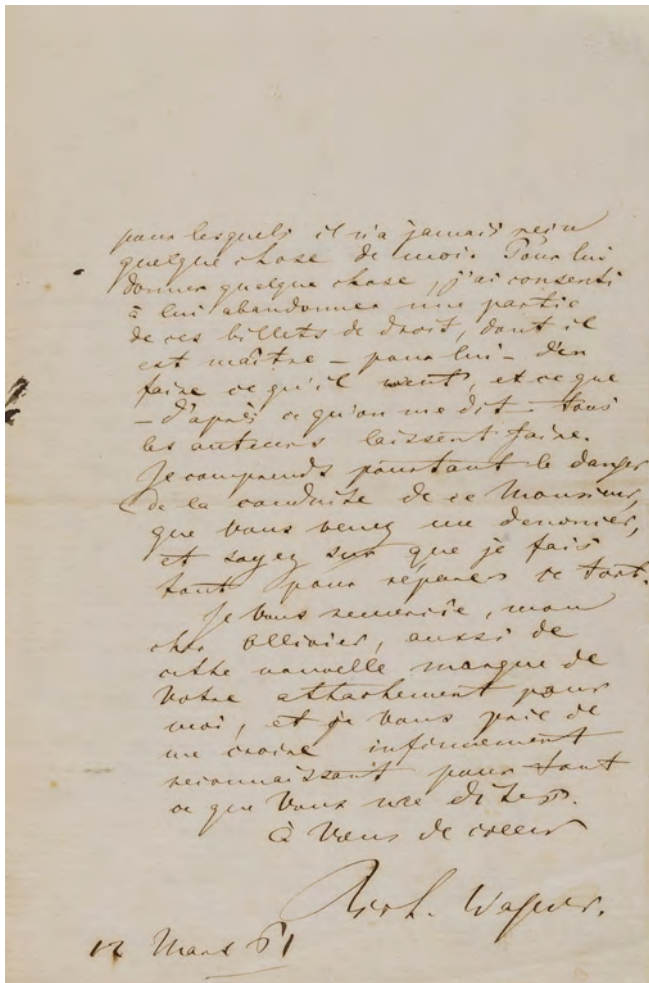 pour lesquels il n'a jamais reçu
quelque chose de moi. Pour lui
donner quelque chose, j'ai consenti
à lui abandonner une partie
de ces billets de droit, dont il
est maître – pour lui – d'en
faire ce qu'il veut, et ce que
– d'après ce qu'on me dit – tous
les auteurs laissent faire.
Je comprends pourtant le danger
de la conduite de ce Monsieur,
que vous venez me denoncer,
et soyez sur que je fais
tout pour réparer ce tort.
Je vous remercie, mon
cher Ollivier, aussi de
cette nouvelle marque de
votre attachement pour
moi, et je vous prie de
me croire infiniment
reconnaissant pour tout
ce que vous me dites.
à vous de coeur
Rich. Wagner.
12 Mars 61